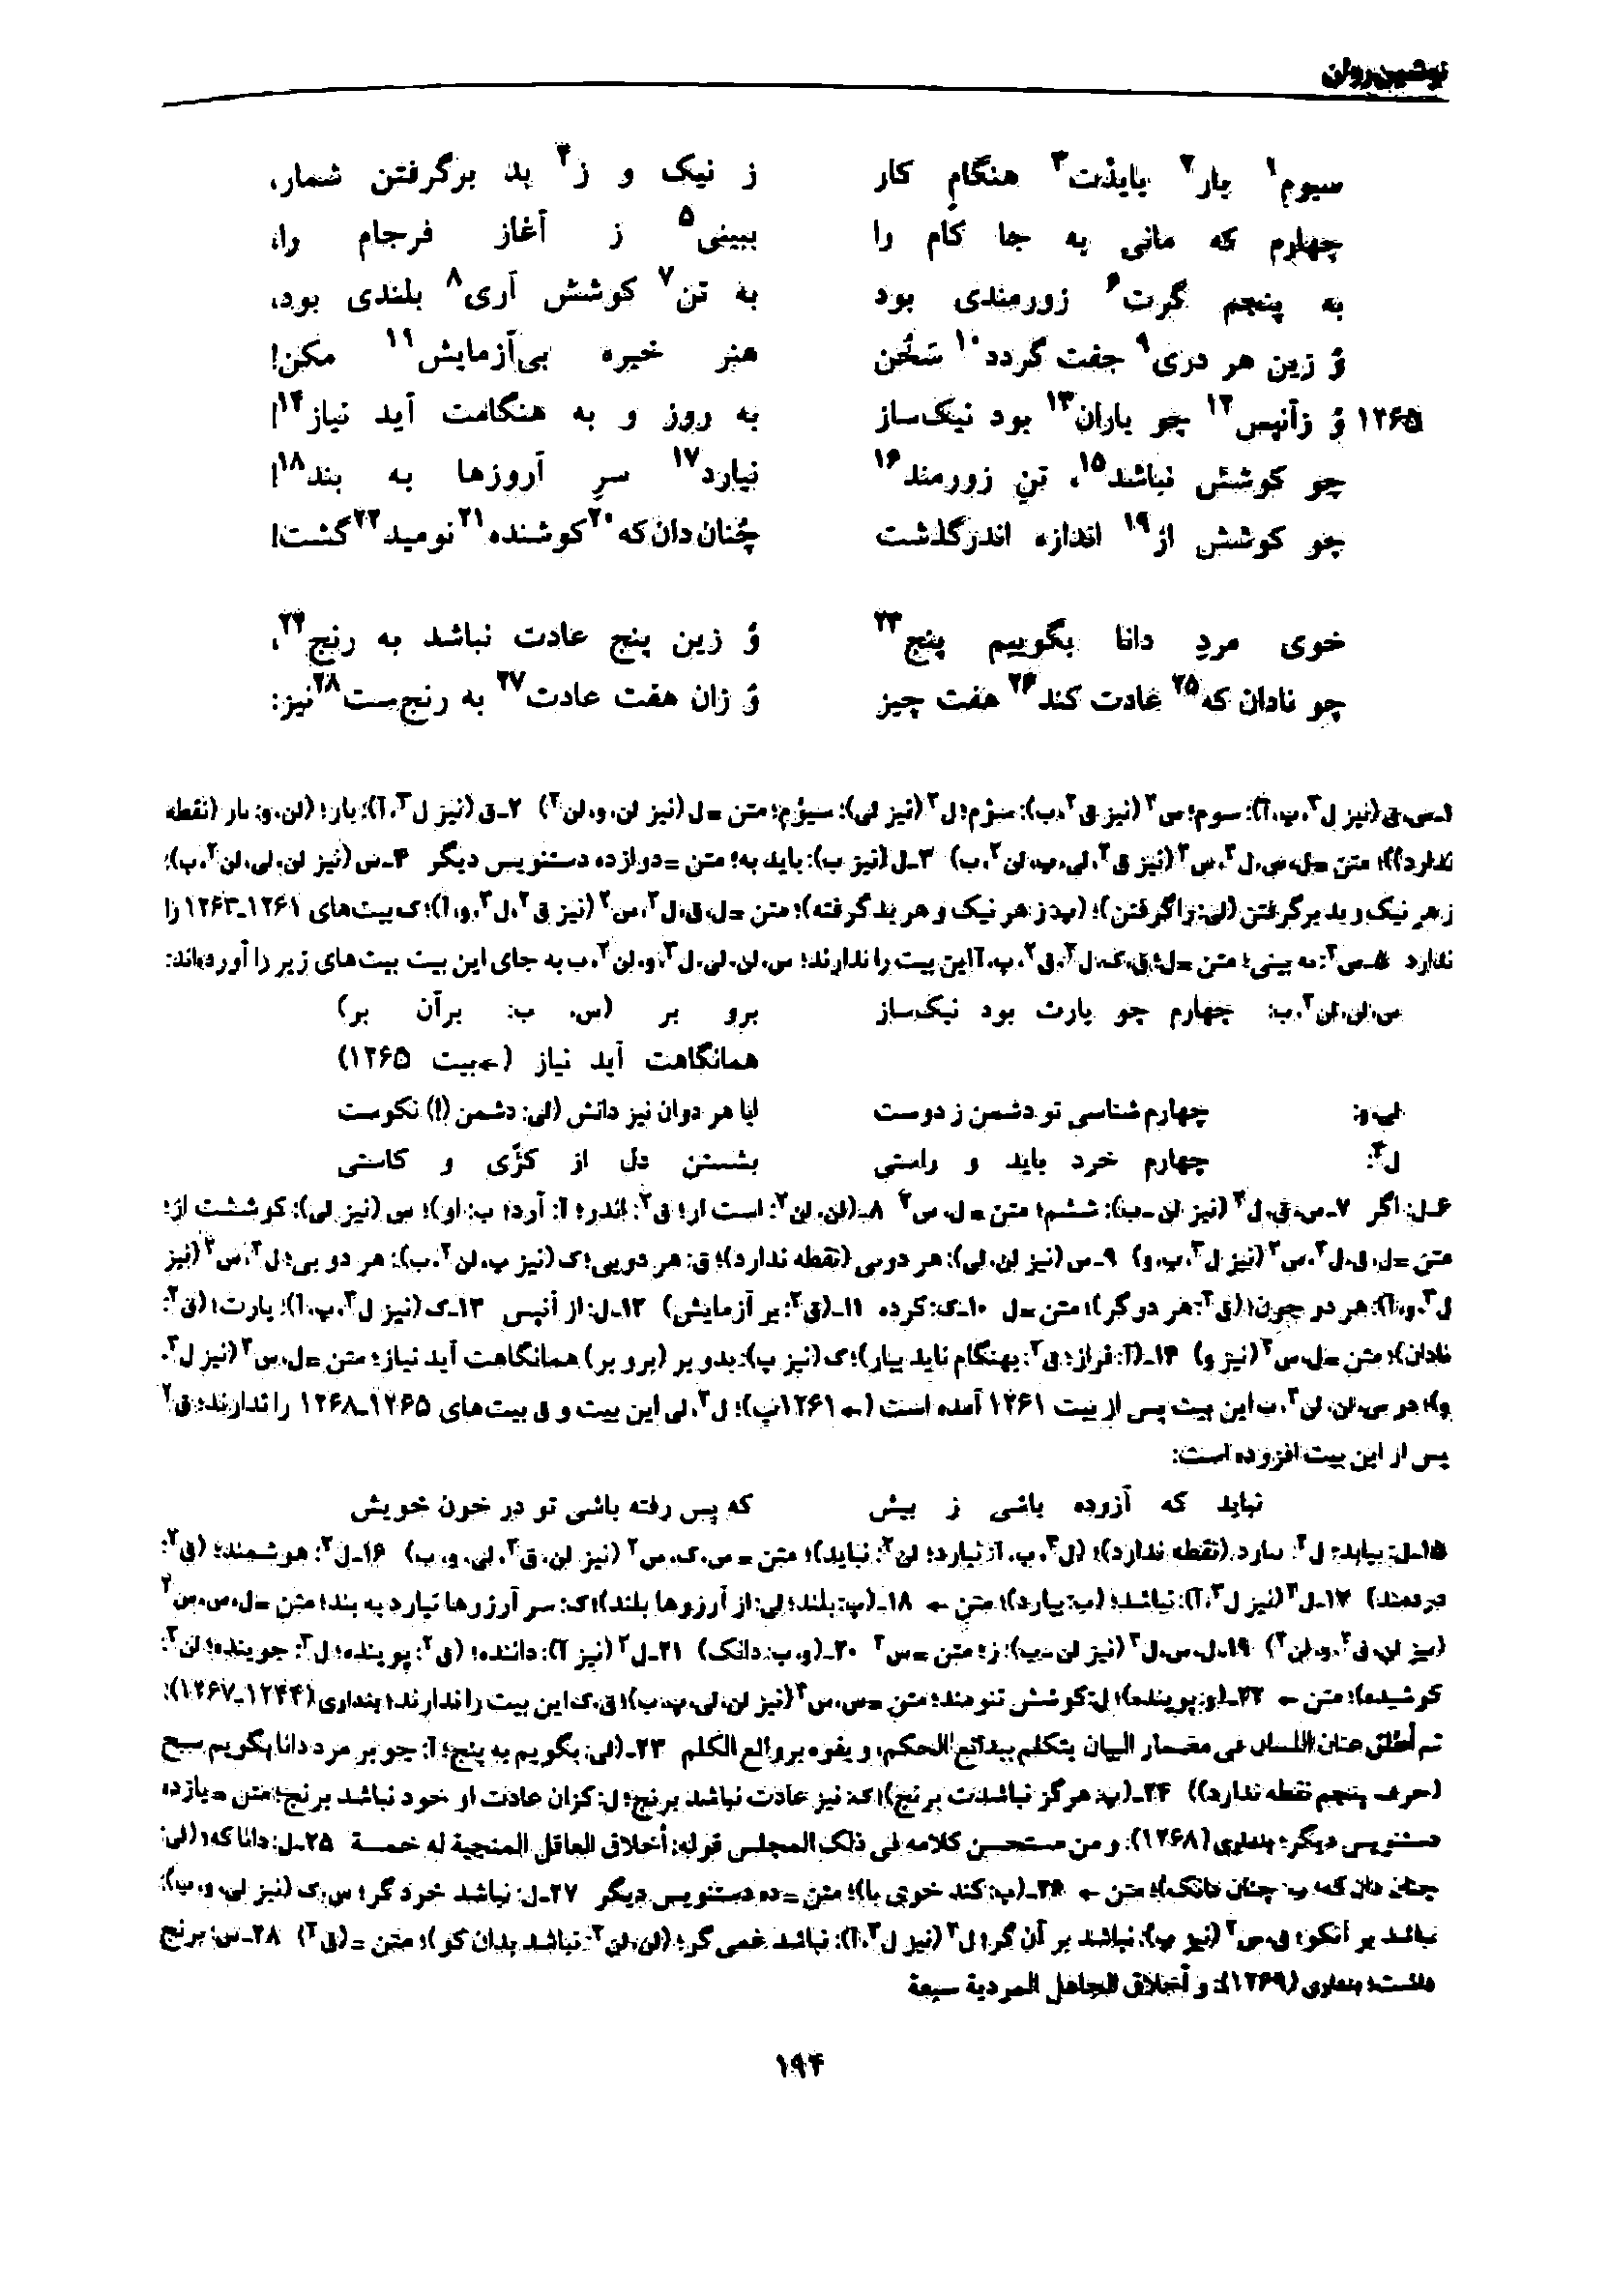 نوشین‌روان
سیوم۱ یار۲ بایدت۳ هنگامِ کار ز نیک و ز۴ بد برگرفتن شمار،
چهارم که مانی به جا کام را ببینی۵ ز آغاز فرجام را،
به پنجم گرت۶ زورمندی بود به تن۷ کوشش آری۸ بلندی بود،
وُ زین هر دری۹ جفت گردد۱۰ سَخُن هنر خیره بی‌آزمایش۱۱ مکن!
۱۲۶۵ وُ زآنپس۱۲ چو یاران۱۳ بود نیک‌ساز به روز و به هنگامت آید نیاز۱۴!
چو کوشش نباشد۱۵، تنِ زورمند۱۶ نیارد۱۷ سرِ آروزها به بند۱۸!
چو کوشش از۱۹ اندازه اندرگذشت چُنان دان که۲۰ کوشنده۲۱ نومید۲۲ گشت!
خوی مردِ دانا بگوییم پنج۲۳ وُ زین پنج عادت نباشد به رنج۲۴،
چو نادان که۲۵ عادت کند۲۶ هفت چیز وُ زان هفت عادت۲۷ به رنج‌ست۲۸ نیز:
۱ـ س، ق (نیز ل۳، پ، آ): سوم؛ س۲ (نیز ق۲، ب): سؤم؛ ل۲ (نیز لی): سیؤم؛ متن = ل (نیز لن، و، لن۲) ۲ـ ق (نیز ل۳، آ): بار؛ (لن، و: ٮار (نقطه
ندارد))؛ متن = ل، س، ل۲، س۲ (نیز ق۲، لی، پ، لن۲، ب) ۳ـ ل (نیز ب): باید به؛ متن = دوازده دستنویس دیگر ۴ـ س (نیز لن، لی، لن۲، ب):
زهر نیک و بد برگرفتن (لی: زاگرفتن)؛ (پ: ز هر نیک و هر بد گرفته)؛ متن = ل، ق، ل۲، س۲ (نیز ق۲، ل۳، و، آ)؛ ک بیت‌های ۱۲۶۱ـ۱۲۶۳ را
ندارد ۵ـ س۲: به بینی؛ متن = ل؛ ق، ک، ل۲، ق۲، پ، آ این بیت را ندارند؛ س، لن، لی، ل۳، و، لن۲، ب به جای این بیت بیت‌های زیر را آورده‌اند:
س، لن، لن۲، ب: چهارم چو یارت بود نیک‌ساز برو بر (س، ب: برآن بر)
همانگاهت آید نیاز (←بیت ۱۲۶۵)
لی، و: چهارم شناسی تو دشمن ز دوست ابا هر دوان نیز دانش (لی: دشمن (!) نکوست
ل۳: چهارم خرد باید و راستی بشستن دل از کژّی و کاستی
۶ـ ل: اگر ۷ـ س، ق، ل۲ (نیز لن ـ ب): ششم؛ متن = ل، س۲ ۸ـ (لن، لن۲: است ار؛ ق۲: اندر؛ آ: آرد؛ ب: او)؛ س (نیز لی): کوششت از؛
متن = ل، ق، ل۲، س۲ (نیز ل۳، پ، و) ۹ـ س (نیز لن، لی): هر دوبی (نقطه ندارد)؛ ق: هر دویی؛ ک (نیز پ، لن۲، ب): هر دو بی؛ ل۲، س۲ (نیز
ل۳، و، آ): هر دو چون؛ (ق۲: هر دو گر)؛ متن = ل ۱۰ـ ک: کرده ۱۱ـ (ق۲: بر آزمایش) ۱۲ـ ل: از آنپس ۱۳ـ ک (نیز ل۳، پ، آ): یارت؛ (ق۲:
نادان)؛ متن = ل، س۲ (نیز و) ۱۴ـ (آ: فراز؛ ق۲: بهنگام ناید بیار)؛ ک (نیز پ): بدو بر (برو بر) همانگاهت آید نیاز؛ متن = ل، س۲ (نیز ل۳،
و)؛ در س، لن، لن۲، ب این بیت پس از بیت ۱۲۶۱ آمده است (← ۱۲۶۱پ)؛ ل۲، لی این بیت و ق بیت‌های ۱۲۶۵ـ۱۲۶۸ را ندارند؛ ق۲
پس از این بیت افزوده است:
نباید که آزرده باشی ز بیش که پس رفته باشی تو در خون خویش
۱۵ـ ل: بیابد؛ ل۲: ٮىارد (نقطه ندارد)؛ (ل۳، پ، آ: نیارد؛ لن۲: نباید)؛ متن = س، ک، س۲ (نیز لن، ق۲، لی، و، ب) ۱۶ـ ل۲: هوشمند؛ (ق۲:
دردمند) ۱۷ـ ل۲ (نیز ل۳، آ): نباشد؛ (ب: بیارد)؛ متن ← ۱۸ـ (پ: بلند؛ لی: از آرزوها بلند)؛ ک: سر آرزوها نیارد به بند؛ متن = ل، س، س۲
(نیز لن، ق۲، و، لن۲) ۱۹ـ ل، س، ل۲ (نیز لن ـ ب): ز؛ متن = س۲ ۲۰ـ (و، ب: دانک) ۲۱ـ ل۲ (نیز آ): داننده؛ (ق۲: پوینده؛ ل۳: جوینده؛ لن۲:
کوشیده)؛ متن ← ۲۲ـ (و: پوینده)؛ ل: کوشش تنومند؛ متن = س، س۲ (نیز لن، لی، پ، ب)؛ ق، ک این بیت را ندارند؛ بنداری (۱۲۴۴ـ۱۲۶۷):
ثم أطلق عنان اللسان فی مضمار البیان یتکلم ببدائع الحکم، و یفوه بروائع الکلم ۲۳ـ (لی: بگویم به پنج؛ آ: چو بر مرد دانا بگویم سىح
(حرف پنجم نقطه ندارد)) ۲۴ـ (پ: هرگز نباشدت برنج)؛ ک: نیز عادت نباشد برنج؛ ل: کزان عادت او خود نباشد برنج؛ متن = یازده
دستنویس دیگر؛ بنداری (۱۲۶۸): و من مستحسن کلامه فی ذلک المجلس قوله: أخلاق العاقل المنجیة له خمسة ۲۵ـ ل: دانا که؛ (لی:
چنان دان که؛ ب: چنان دانک)؛ متن ← ۲۶ـ (پ: کند خوی با)؛ متن = ده دستنویس دیگر ۲۷ـ ل: نباشد خرد گر؛ س، ک (نیز لی، و، ب):
نباشد بر آنکو؛ ق، س۲ (نیز پ): نباشد بر آن گر؛ ل۲ (نیز ل۳، آ): نباشد غمی گر؛ (لن، لن۲: نباشد بدان کو)؛ متن = (ق۲) ۲۸ـ س: برنج
داشت؛ بنداری (۱۲۶۹): و أخلاق الجاهل المردیة سبعة
۱۹۴